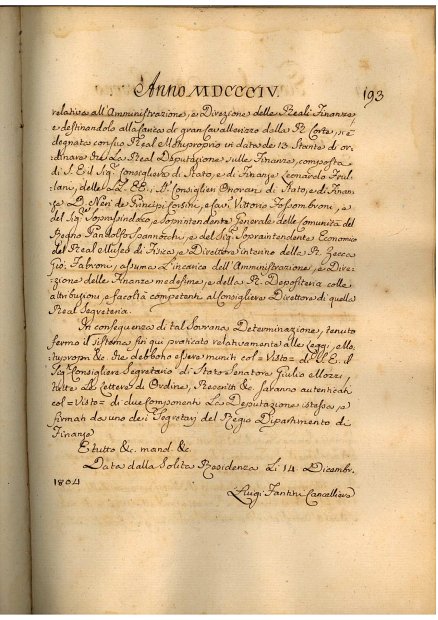 Anno MDCCCIV.
193
relativa all'Amministrazione, e Direzione delle Reali Finanze,
e destinandolo alla Carica di gran Cavallerizzo della R. Corte, si è
degnata con suo Real Motuproprio in data de 13. Stante di or-
dinare che La Real Deputazione sulle Finanze, composta
di S. E. il Sig. Consigliere di Stato, e di Finanze Leonardo Frul-
lani, delle LL. EE. i SS. Consiglieri Onorari di Stato, e di Finan-
ze D. Neri de Principi Corsini, e Cav. Vittorio Fossombroni, e
del Sig. Soprassindaco, e Soprintendente Generale delle Comunità del
Regno Pandolfo Spannocchi, e del Sig. Sopraintendente Economico
del Real Museo di Fisica e Direttore interino della R. Zecca
Gio: Fabroni, assuma L'incarico dell'Amministrazione, e Dire-
zione delle Finanze medesime, e della R. Depositeria colle
attribuzioni, e facoltà competenti al Consigliere Direttore di quella
Real Segreteria.
In conseguenza di tal Sovrana Determinazione, tenuto
fermo il sistema fin qui praticato relativamente alle Leggi, Mo-
tupropri &c. che debbono essere muniti col = Visto = di S. E. il
Sig. Consigliere Segretario di Stato Senatore Giulio Mozzi,
tutte Le Lettere di Ordine, Rescritti &c. saranno autenticati
col = Visto = di due Componenti La Deputazione istessa, e
firmati da uno dei Segretari del Regio Dipartimento di
Finanze
E tutto &c. mand. &c.
Data dalla Solita Residenza Li 14. Dicembr.
1804
Luigi Fantini Cancelliere